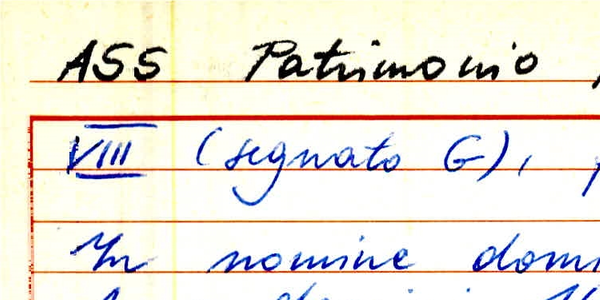 ASS Patrimonio
VIII (segnato G),
In nomine dom